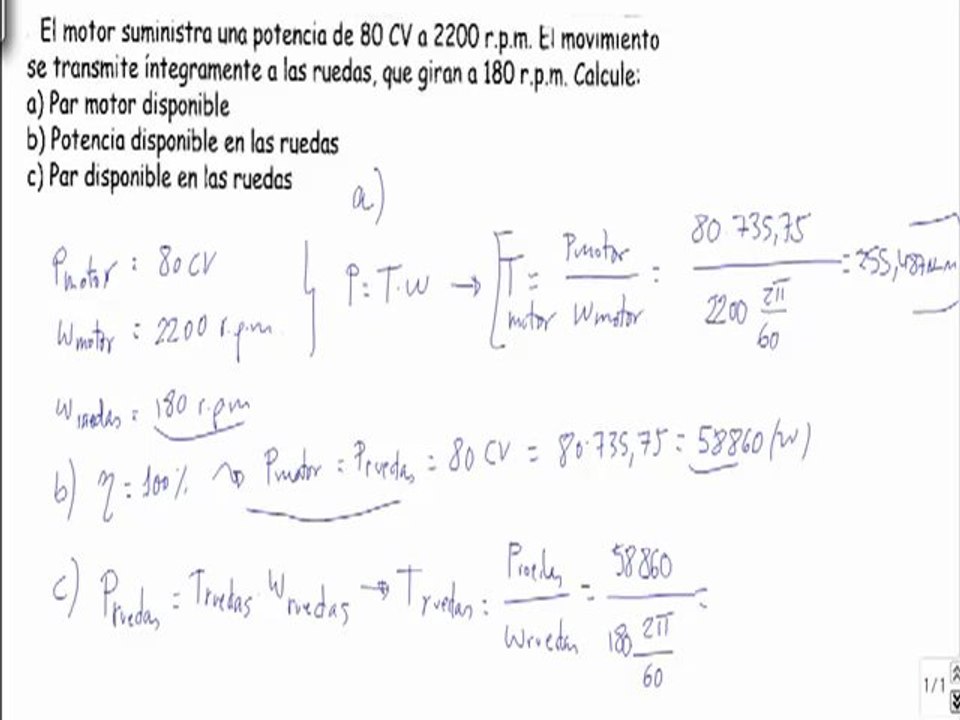 El motor suministra una potencia de 80 CV a 2200 r.p.m. El movimiento
se transmite íntegramente a las ruedas, que giran a 180 r.p.m. Calcule:
a) Par motor disponible
b) Potencia disponible en las ruedas
c) Par disponible en las ruedas
a)
Pmotor : 80 CV
Wmotor : 2200 r.p.m.
P = T·w → Tmotor = Pmotor / Wmotor = 80·735,75 / 2200 2π/60 = 255,487 N·m
Wruedas = 180 r.p.m
b) η = 100% ⇝ Pmotor = Pruedas = 80 CV = 80·735,75 = 58860 (W)
c) Pruedas = Truedas·Wruedas → Truedas = Pruedas / Wruedas = 58860 / 180 2π/60 =
1/1